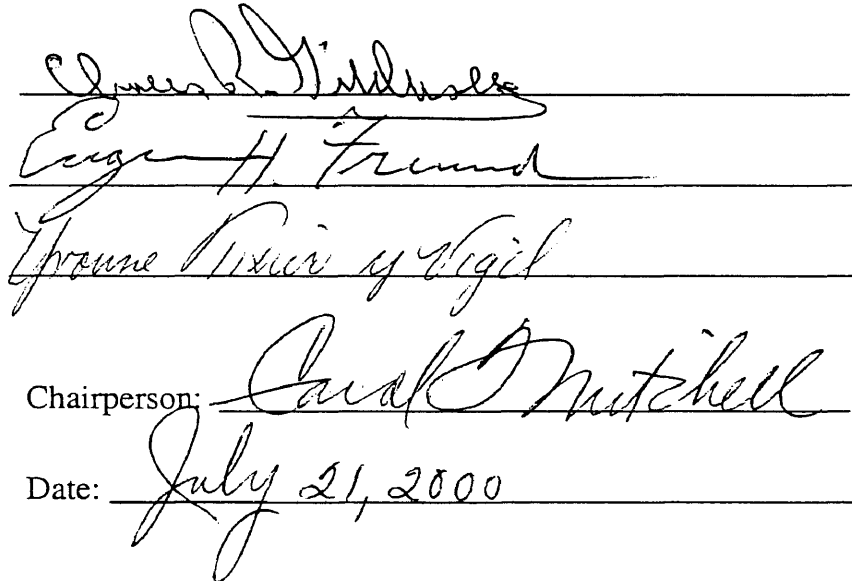 R.
Eugene H. Freund
Yvonne y Vigil
Chairperson: Carol Mitchell
Date: July 21, 2000